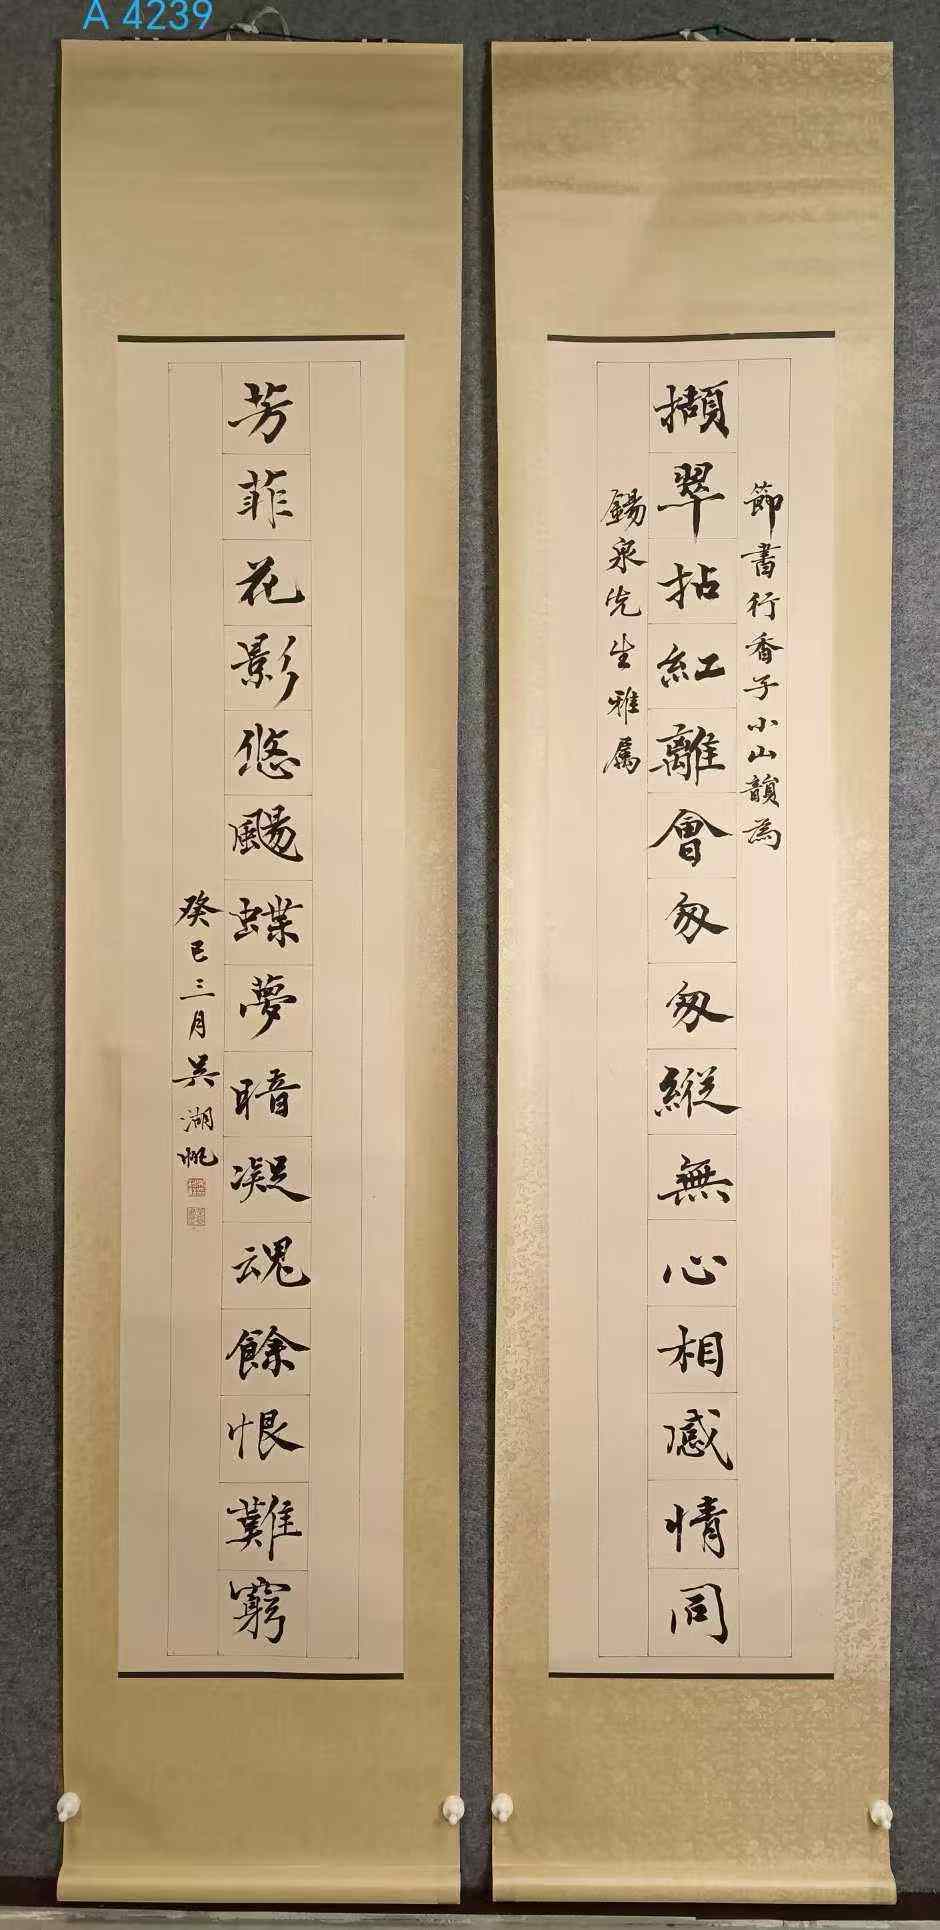 A 4239
節書行香子小山韻為
擷翠拈紅離會匆匆縱無心相感情同
錫泉先生雅属
芳菲花影悠颺蝶夢暗凝魂餘恨難窮
癸巳三月吳湖帆